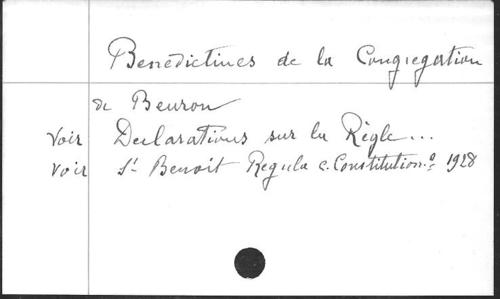 Benedictines de la Congregation
de Beuron
Voir Declarations sur la Règle...
Voir St Benoit Regula c. Constitution.º 1928